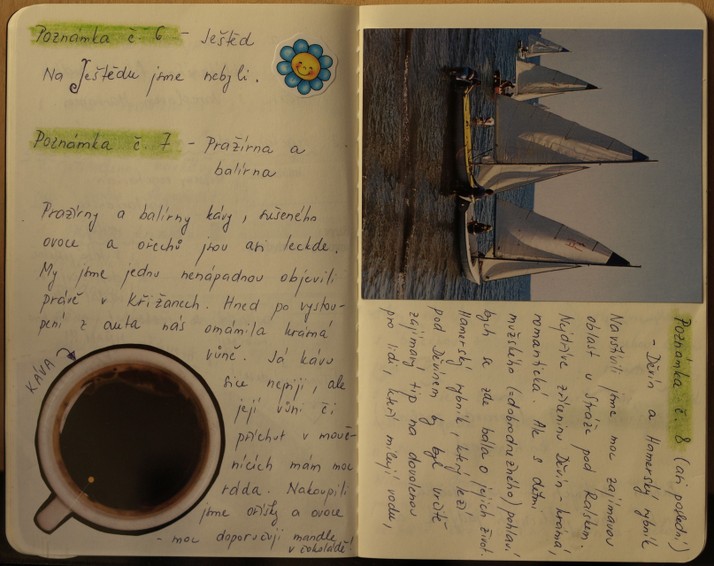 Poznámka č. 6 - Ještěd
Na Ještědu jsme nebyli.
Poznámka č. 7 - Pražírna a
balírna
Pražírny a balírny kávy, sušeného
ovoce a ořechů jsou asi leckde.
My jsme jednu nenápadnou objevili
právě v Křižanech. Hned po vystou-
pení z auta nás omámila krásná
vůně. Já kávu
sice nepiji, ale
její vůni či
příchuť v mouč-
nících mám moc
ráda. Nakoupili
jsme oříšky a ovoce
- moc doporučuji mandle
v čokoládě!
KÁVA
Poznámka č. 8 (asi poslední)
- Děvín a Hamerský rybník
Navštívili jsme moc zajímavou
oblast u Stráže pod Ralskem.
Nejdříve zříceninu Děvín - krásná,
romantická. Ale s dětmi
mužského (=dobrodružného) pohlaví
bych se zde bála o jejich život.
Hamerský rybník, který leží
pod Děvínem by byl určitě
zajímavý tip na dovolenou
pro lidi, kteří milují vodu,